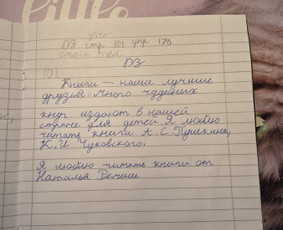 little
ДЗ стр. 101 упр. 176
101
ДЗ
Книги – наши лучшие
друзья. Много чудесных
книг издают в нашей
стране для детей. Я люблю
читать книги А. С. Пушкина,
К. И. Чуковского.
Я люблю читать книги от
Наталья